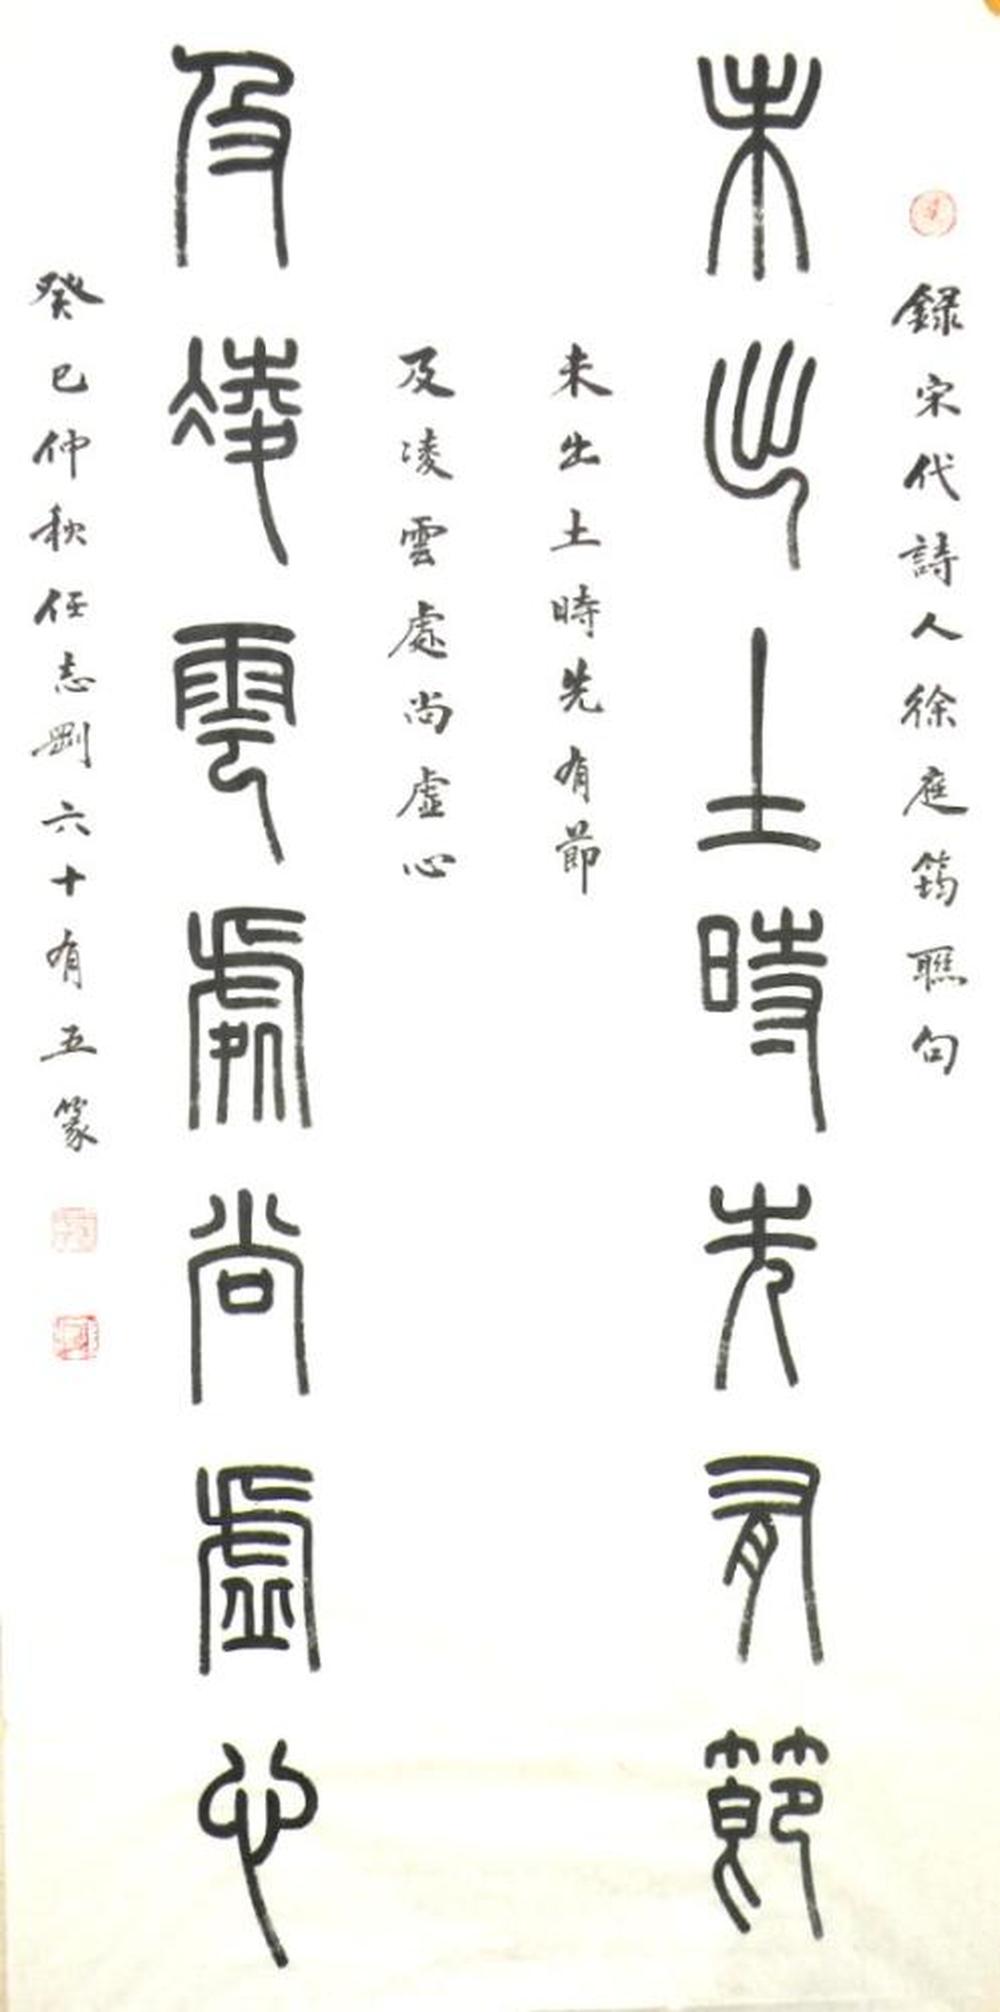 録宋代詩人徐庭筠聯句
未出土時先有節
未出土時先有節
及凌雲處尚虛心
及凌雲處尚虛心
癸巳仲秋任志剛六十有五篆